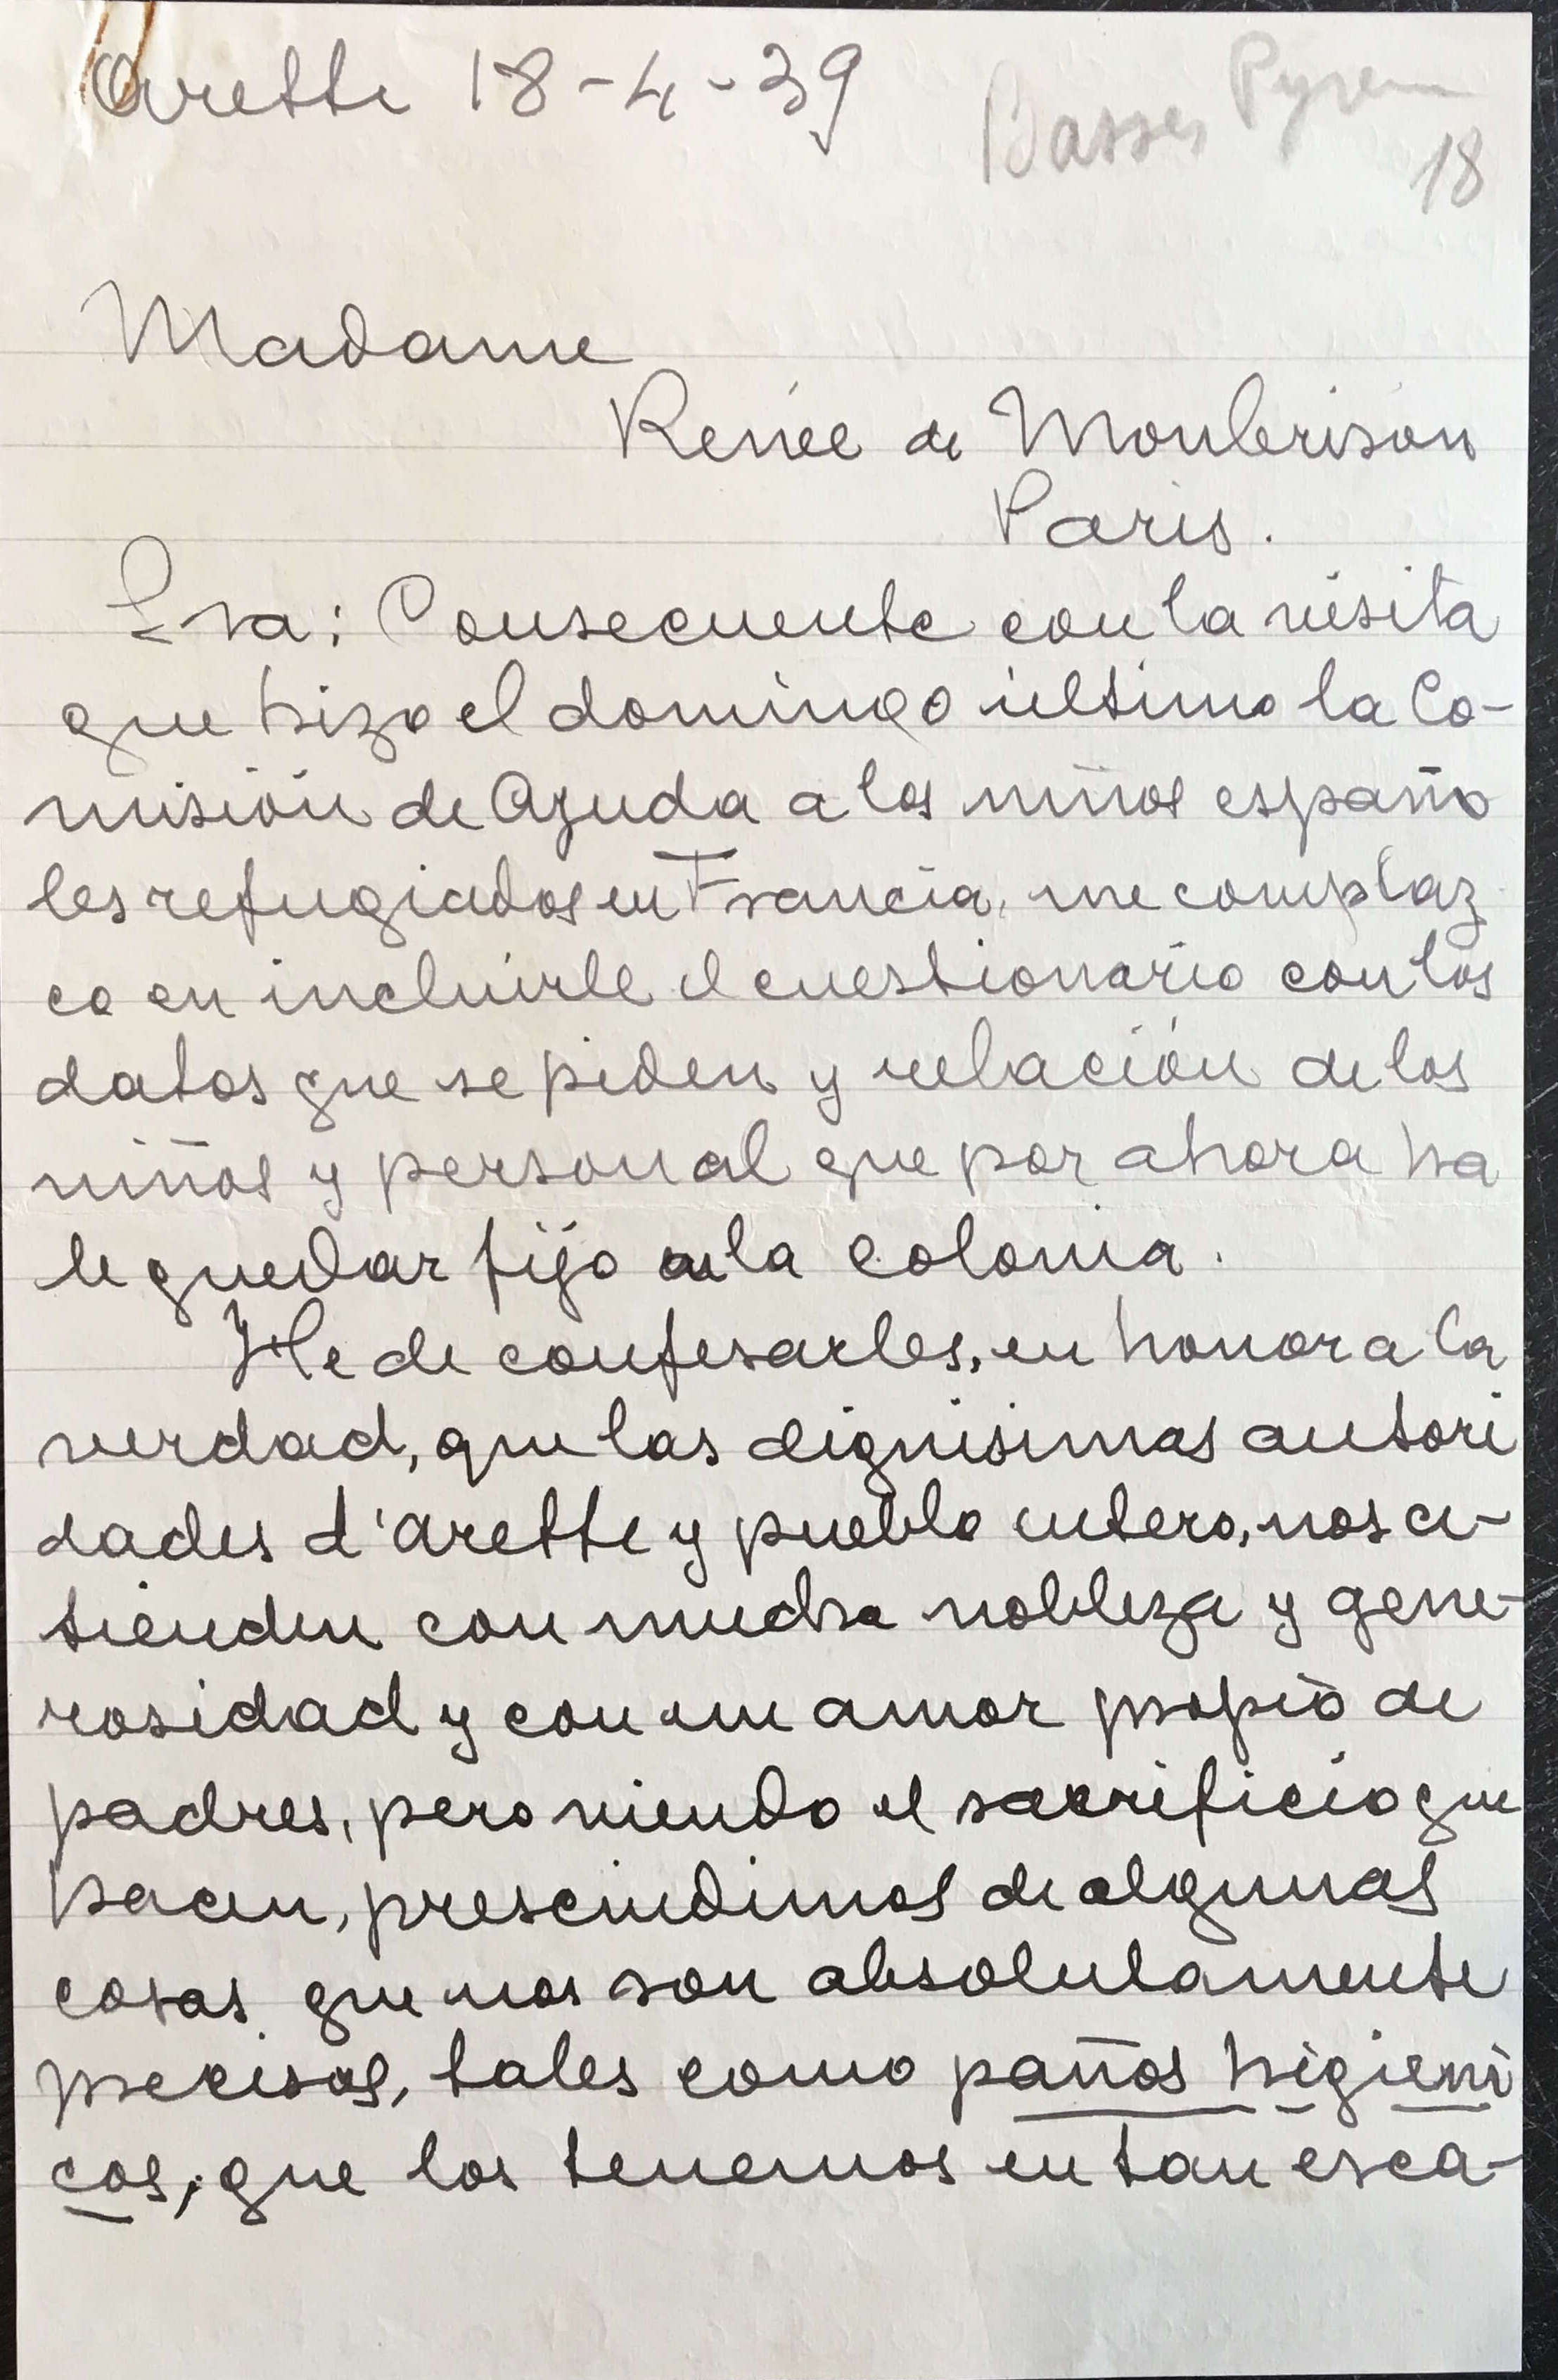 Arette 18-4-39
Basses Pyren
18
Madame
Renée de Monbrison
Paris.
Sra: Consecuente con la visita
que hizo el domingo último la Co-
misión de Ayuda a los niños españo
les refugiados en Francia, me complaz
co en incluirle el cuestionario con los
datos que se piden y relación de los
niños y personal que por ahora ha
de quedar fijo en la colonia.
He de confesarles, en honor a la
verdad, que las dignisimas autori
dades d'Arette y pueblo entero, nos a-
tienden con mucha nobleza y gene-
rosidad y con un amor propio de
padres, pero viendo el sacrificio que
hacen, prescindimos de algunas
cosas que nos son absolutamente
precisas, tales como paños higieni
cos, que los tenemos en tan esca-